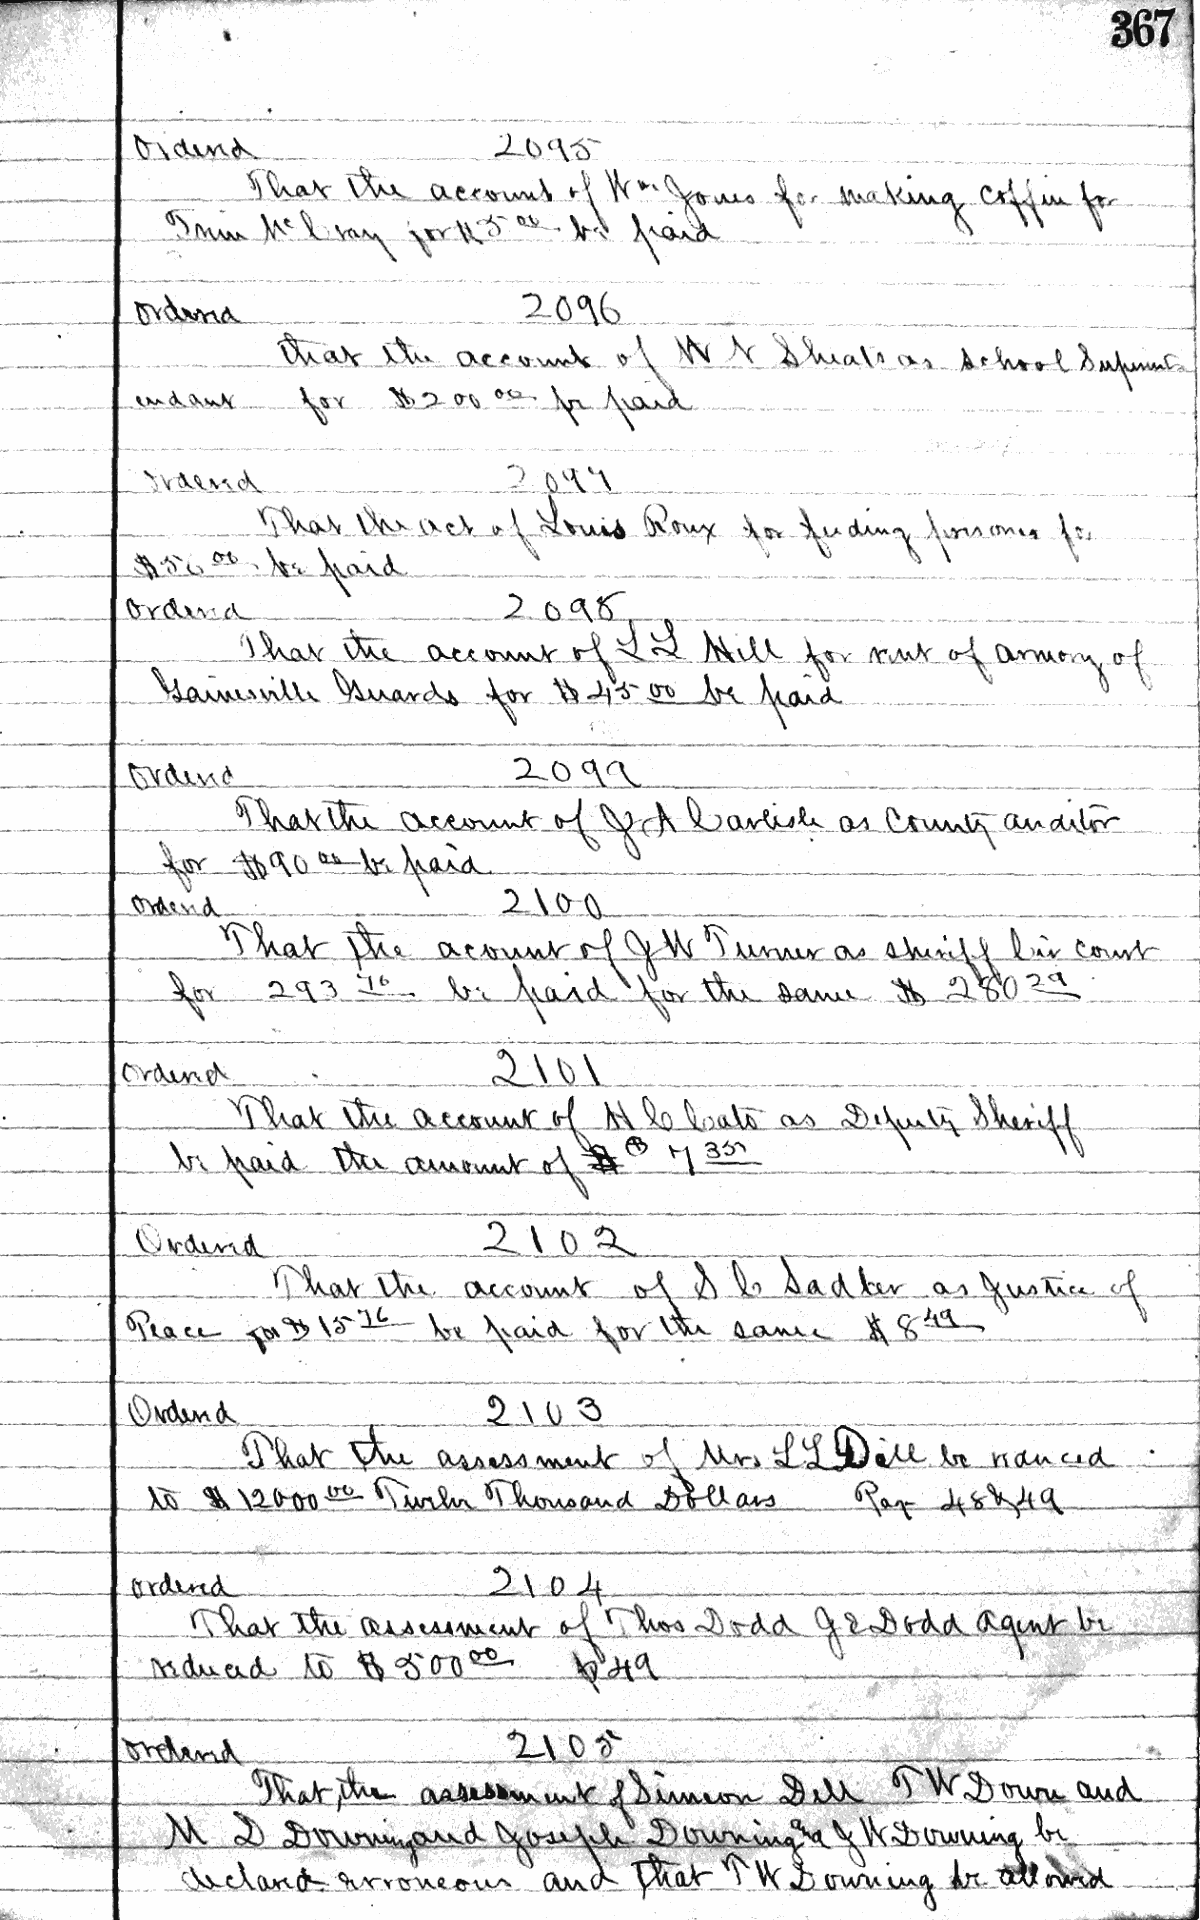 367
Ordered 2095
That the account of Wm Jones for making coffin for
McCray for $5 00 be paid
Ordered 2096
that the account of W N Sheats as School Superint-
endant for $200 00 be paid
Ordered 2097
That the act of Louis Roux for feeding prisoner for
be paid
Ordered 2098
That the account of L L Hill for rent of armory of
Gainesville Guards for $45 00 be paid
Ordered 2099
That the account of J A Carlisle as County auditor
for $90 00 be paid
Ordered 2100
That the acount of J W Turner as sheriff Cir court
for 293 76 be paid for the same $280 29
Ordered 2101
That the account of H C Cato as Deputy Sheriff
be paid the amount of $ 7 35
Ordered 2102
That the account of S C Sadler as Justice of
Peace for $15 76 be paid for the same $8 49
Ordered 2103
That the assessment of Mrs L L Dell be reduced
to $12000 00 Twelve Thousand Dollars Pag 48 & 49
Ordered 2104
That the assessment of Thos Dodd J E Dodd agent be
reduced to $500 00 p 49
Ordered 2105
That the assessment of Simeon Dell T W Down and
M D Downing and Joseph Downing & J W Downing be
declared erroneous and that T W Downing be allowed